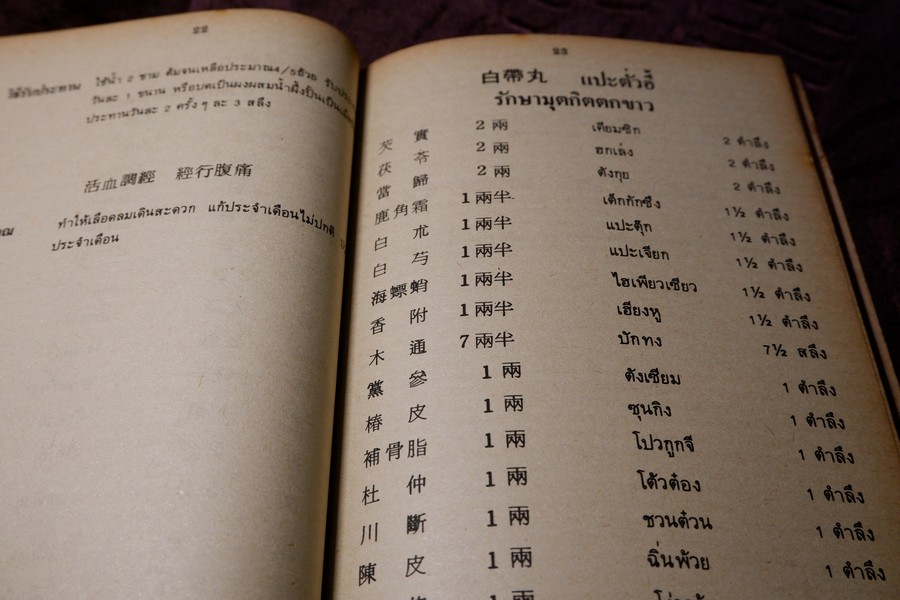 22
ใช้รับประทาน ใช้น้ำ 2 ชาม ต้มจนเหลือประมาณ4/5ถ้วย
วันละ 1 ขนาน หรือบดเป็นผงผสมน้ำผึ้งปั้นเป็นเม็ด
ประทานวันละ 2 ครั้ง ๆ ละ 3 สลึง
活血調經 經行腹痛
ทำให้เลือดลมเดินสะดวก แก้ประจำเดือนไม่ปกติ
ประจำเดือน
23
白帶丸 แปะตั่วอี๊
รักษามุตกิตตกขาว
芡實 2兩 เคียมซิก 2 ตำลึง
茯苓 2兩 ฮกเล่ง 2 ตำลึง
當歸 2兩 ตังกุย 2 ตำลึง
鹿角霜 1兩半 เต็กกักซึง 1½ ตำลึง
白朮 1兩半 แปะตุ๊ก 1½ ตำลึง
白芍 1兩半 แปะเจียก 1½ ตำลึง
海螵蛸 1兩半 ไฮเพียวเซียว 1½ ตำลึง
香附 1兩半 เฮียงหู 1½ ตำลึง
木通 7兩半 บักทง 7½ สลึง
黨參 1兩 ตังเซียม 1 ตำลึง
椿皮 1兩 ชุนกิง 1 ตำลึง
補骨脂 1兩 โปวกูกจี 1 ตำลึง
杜仲 1兩 โต้วต๋อง 1 ตำลึง
川斷 1兩 ชวนต๋วน 1 ตำลึง
陳皮 1兩 ฉิ่นพ้วย 1 ตำลึง